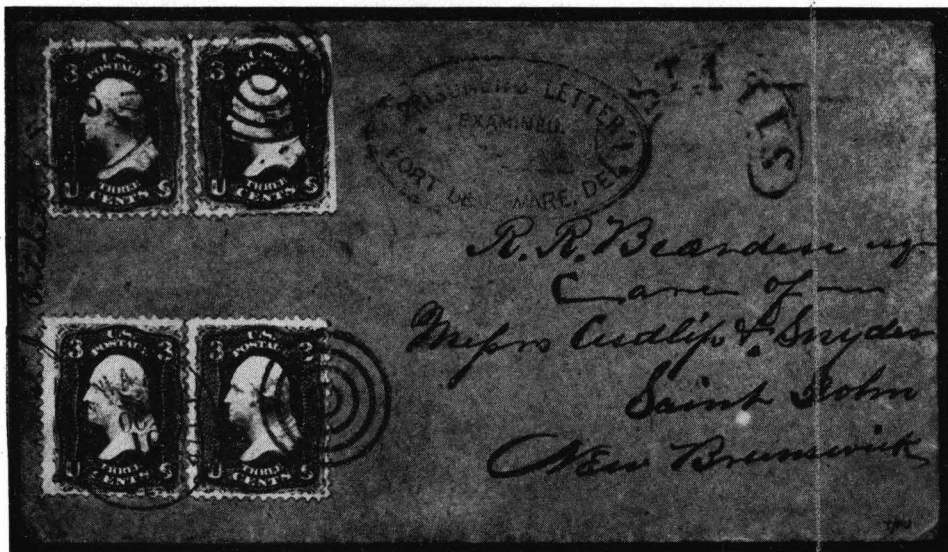 3 U.S. 3
POSTAGE
U THREE S
CENTS
3 U.S. 3
POSTAGE
U THREE S
CENTS
PRISONERS LETTER
EXAMINED.
FORT DE WARE, DEL
ST. J
R. R. Bearden
Care of
Messrs Cudlip & Snyder
Saint John
New Brunswick
3 U.S. 3
POSTAGE
U THREE S
CENTS
OC
3 U.S. 3
POSTAGE
U THREE S
CENTS